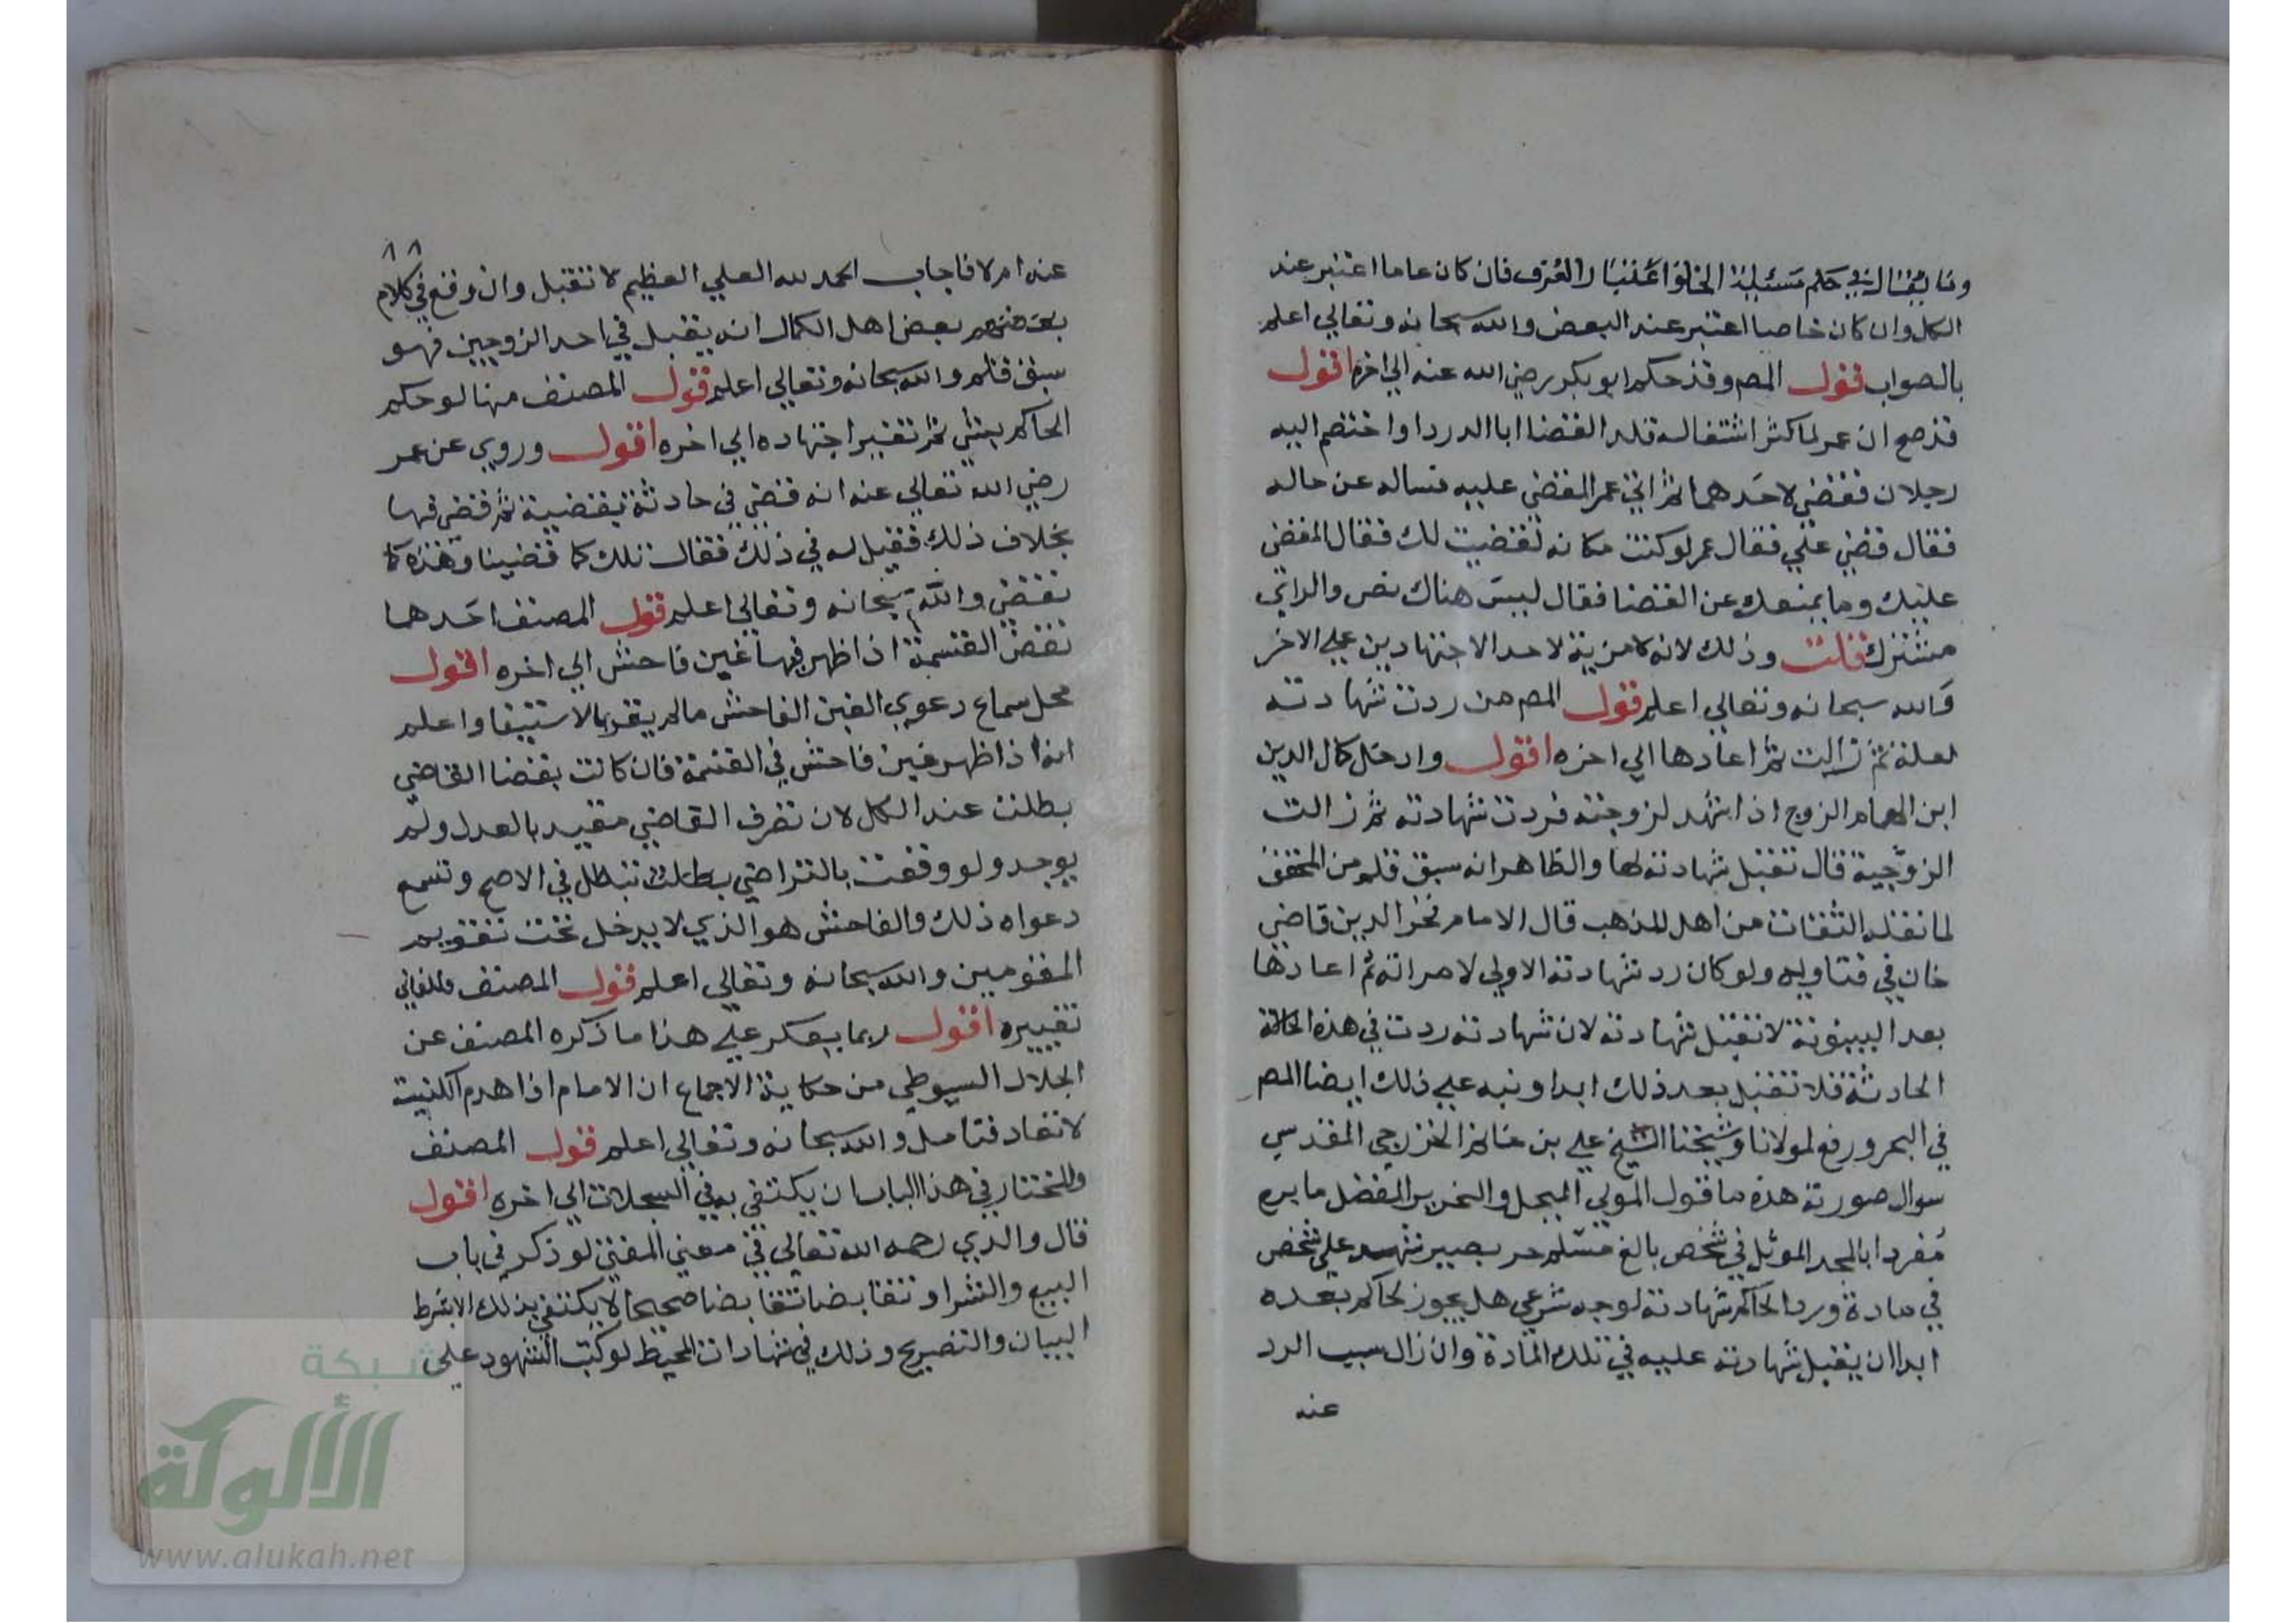 وما يقال في حكم مسئلة الخلو اعتبار العرف فان كان عاما اعتبر عند
الكل وان كان خاصا اعتبر عند البعض والله سبحانه وتعالي اعلم
بالصواب قول المص وقد حكم ابو بكر رضي الله عنه الي اخره اقول
قد صح ان عمر لما كثر اشتغاله قلد القضا ابا الدردا واختصم اليه
رجلان فقضي لاحدهما ثم اتي عمر المقضي عليه فساله عن حاله
فقال قضي علي فقال عمر لو كنت مكانه لقضيت لك فقال المقضي
عليك وما يمنعك عن القضا فقال ليس هناك نص والراي
مشترك قلت وذلك لانه لا مزية لاحد الاجتهادين علي الاخر
والله سبحانه وتعالي اعلم قول المص من ردت شهادته
لعلة ثم زالت ثم اعادها الي اخره اقول وادخل كمال الدين
ابن الهمام الزوج اذا شهد لزوجته فردت شهادته ثم زالت
الزوجية قال تقبل شهادته لها والظاهر انه سبق قلم من المحقق
لما نقله الثقات من اهل المذهب قال الامام فخر الدين قاضي
خان في فتاويه ولو كان رد شهادته الاولي لامراته ثم اعادها
بعد البينونة لا تقبل شهادته لان شهادته ردت في هذه الحالة
الحادثة فلا تقبل بعد ذلك ابدا ونبه علي ذلك ايضا المص
في البحر ورفع لمولانا وشيخنا الشيخ علي بن غانم الخزرجي المقدسي
سوال صورته هذه ما قول المولي المبجل والنحرير المفضل ما يره
مفردا بالمجد الموثل في شخص بالغ مسلم حر بصير شهد علي شخص
في مادة ورد الحاكم شهادته لوجه شرعي هل يجوز لحاكم بعده
ابدا ان يقبل شهادته عليه في تلك المادة وان زال سبب الرد
عنه
٨٨
عنه ام لا فاجاب الحمد لله العلي العظيم لا تقبل وان وقع في كلام
بعضهم بعض اهل الكمال انه يقبل في احد الزوجين فهو
سبق قلم والله سبحانه وتعالي اعلم قول المصنف منها لو حكم
الحاكم بشي ثم تغير اجتهاده الي اخره اقول وروي عن عمر
رضي الله تعالي عنه انه قضي في حادثة بقضية ثم قضي فيها
بخلاف ذلك فقيل له في ذلك فقال تلك كما قضينا وهذه كما
نقضي والله سبحانه وتعالي اعلم قول المصنف احدهما
نقض القسمة اذا ظهر فيها غبن فاحش الي اخره اقول
محل سماع دعوي الغبن الفاحش ما لم يقر بالاستيفا واعلم
انه اذا ظهر غبن فاحش في القسمة فان كانت بقضا القاضي
بطلت عند الكل لان تصرف القاضي مقيد بالعدل ولم
يوجد ولو وقعت بالتراضي بطلت تبطل في الاصح وتسمع
دعواه ذلك والفاحش هو الذي لا يدخل تحت تقويم
المقومين والله سبحانه وتعالي اعلم قول المصنف فللثاني
تغييره اقول ربما يعكر علي هذا ما ذكره المصنف عن
الجلال السيوطي من حكاية الاجماع ان الامام اذا هدم الكنيسة
لا تعاد فتامل والله سبحانه وتعالي اعلم قول المصنف
والمختار في هذا الباب ان يكتفي به في السجلات الي اخره اقول
قال والدي رحمه الله تعالي في معين المفتي لو ذكر في باب
البيع والشرا وتقابضا تقابضا صحيحا لا يكتفي بذلك الا بشرط
البيان والتصريح وذلك في شهادات المحيط لو كتب الشهود علي
شبكة
الألوكة
www.alukah.net